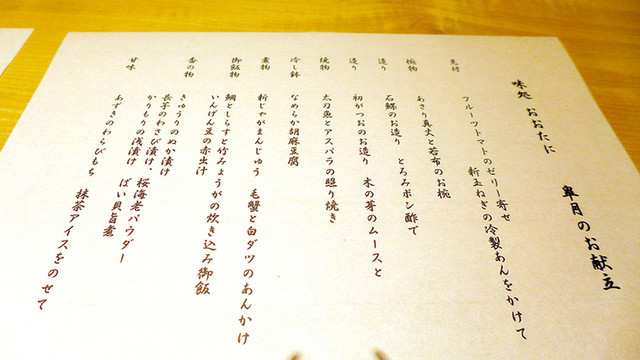 味処 おおたに 皐月のお献立
先付 フルーツトマトのゼリー寄せ
新玉ねぎの冷製あんをかけて
椀物 あさり真丈と若布のお椀
造り 石鯛のお造り とろみポン酢で
造り 初がつおのお造り 木の芽のムースと
焼物 太刀魚とアスパラの照り焼き
冷し鉢 なめらか胡麻豆腐
煮物 新じゃがまんじゅう 毛蟹と白ダツのあんかけ
御飯物 鯛としらすと竹みょうがの炊き込み御飯
いんげん豆の赤出汁
香の物 きゅうりのぬか漬け
長芋のわさび漬け、桜海老パウダー
かりもりの浅漬け ばい貝旨煮
甘味 あずきのわらびもち 抹茶アイスをのせて